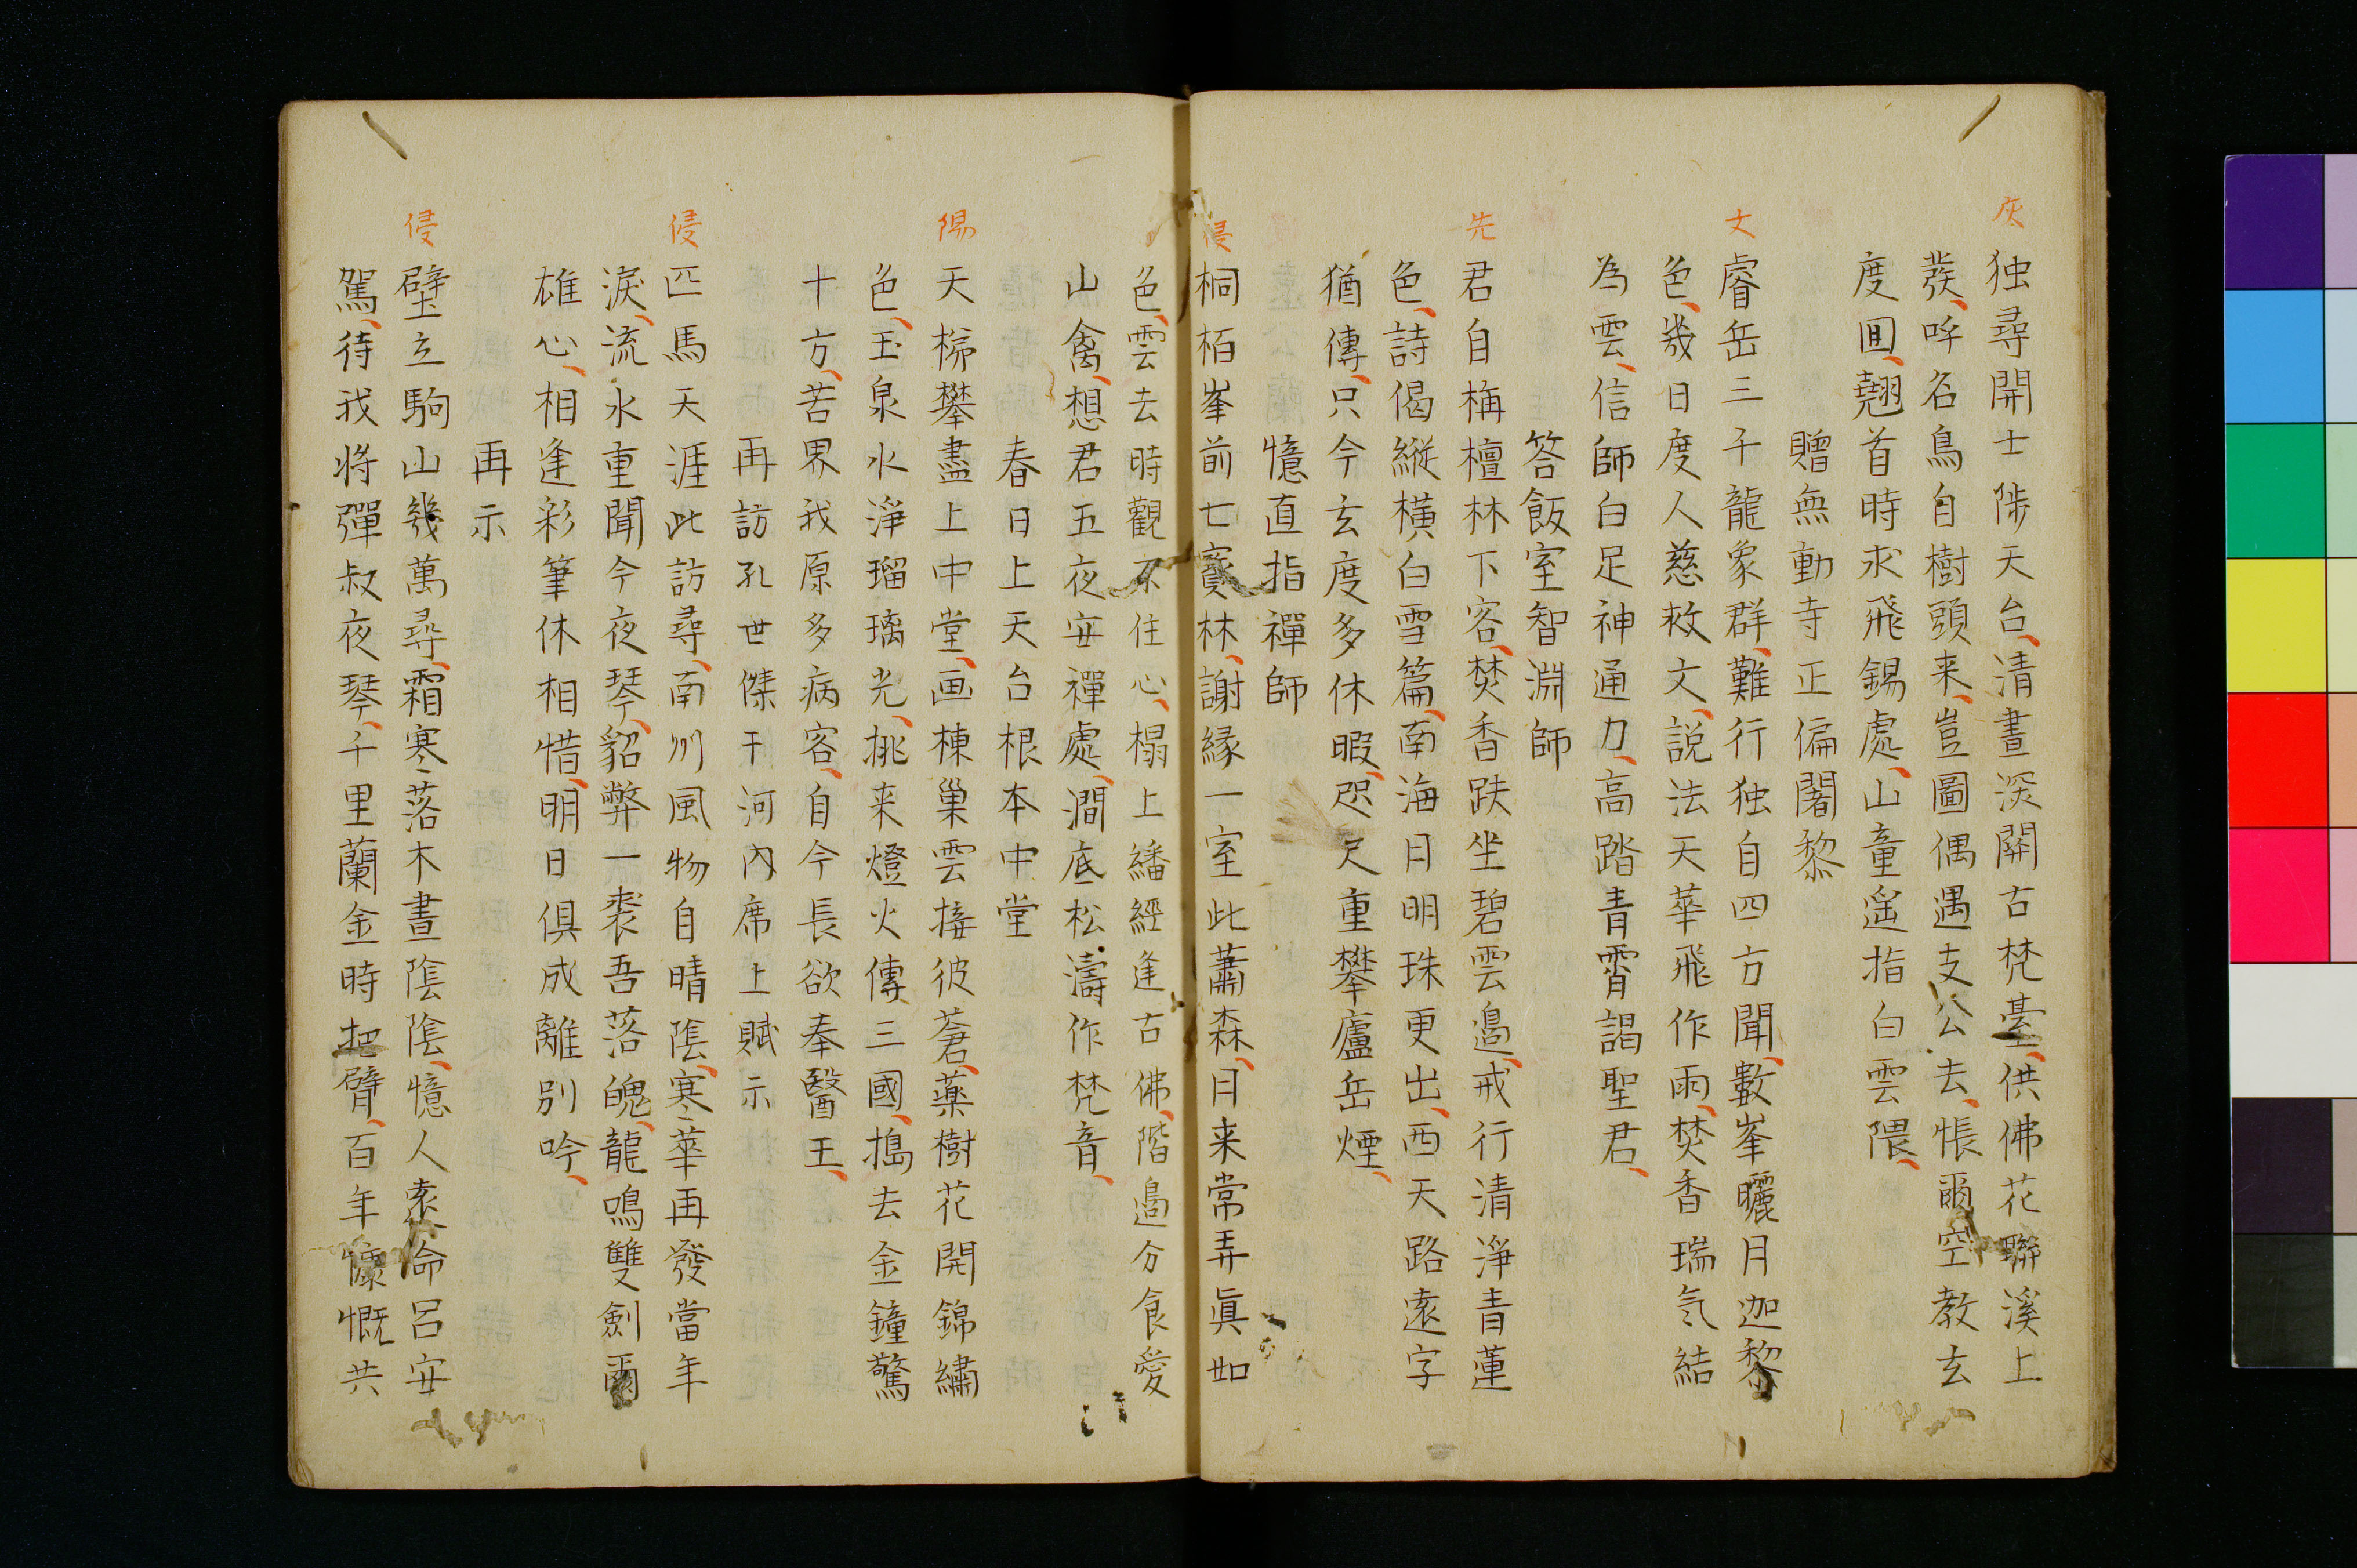 灰
独尋開士陟天台、清晝深開古梵臺、供佛花聯溪上
發、呼名鳥自樹頭来、豈圖偶遇支公去、悵爾空教玄
度回、翹首時求飛錫處、山童遙指白雲隈、
贈無動寺正偏闍黎
文
睿岳三千龍象群、難行独自四方聞、數峯曬月迦黎
色、幾日度人慈救文、説法天華飛作雨、焚香瑞気結
為雲、信師白足神通力、高踏青霄謁聖君、
答飯室智淵師
先
君自栴檀林下客、焚香趺坐碧雲邊、戒行清淨青蓮
色、詩偈縱横白雪篇、南海月明珠更出、西天路遠字
猶傳、只今玄度多休暇、咫尺重攀廬岳煙、
憶直指禪師
侵
桐栢峯前七寳林、謝縁一室此蕭森、月来常弄眞如
色、雲去時觀不住心、榻上繙經逢古佛、階邊分食愛
山禽、想君五夜安禪處、澗底松濤作梵音、
春日上天台根本中堂
陽
天梯攀盡上中堂、画棟巢雲接彼蒼、薬樹花開錦繡
色、玉泉水淨瑠璃光、挑来燈火傳三國、搗去金鐘驚
十方、苦界我原多病客、自今長欲奉醫王、
再訪孔世傑于河內席上賦示
侵
匹馬天涯此訪尋、南州風物自晴陰、寒華再發當年
淚、流水重聞今夜琴、貂弊一裘吾落魄、龍鳴雙劍爾
雄心、相逢彩筆休相惜、明日俱成離別吟、
再示
侵
壁立駒山幾萬尋、霜寒落木晝陰陰、憶人遠命呂安
駕、待我将彈叔夜琴、千里蘭金時把臂、百年慷慨共